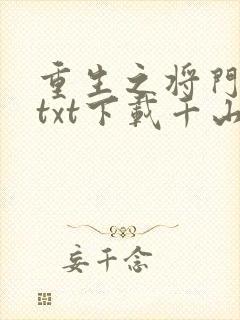 重生之将門
txt下載千山
妄千念